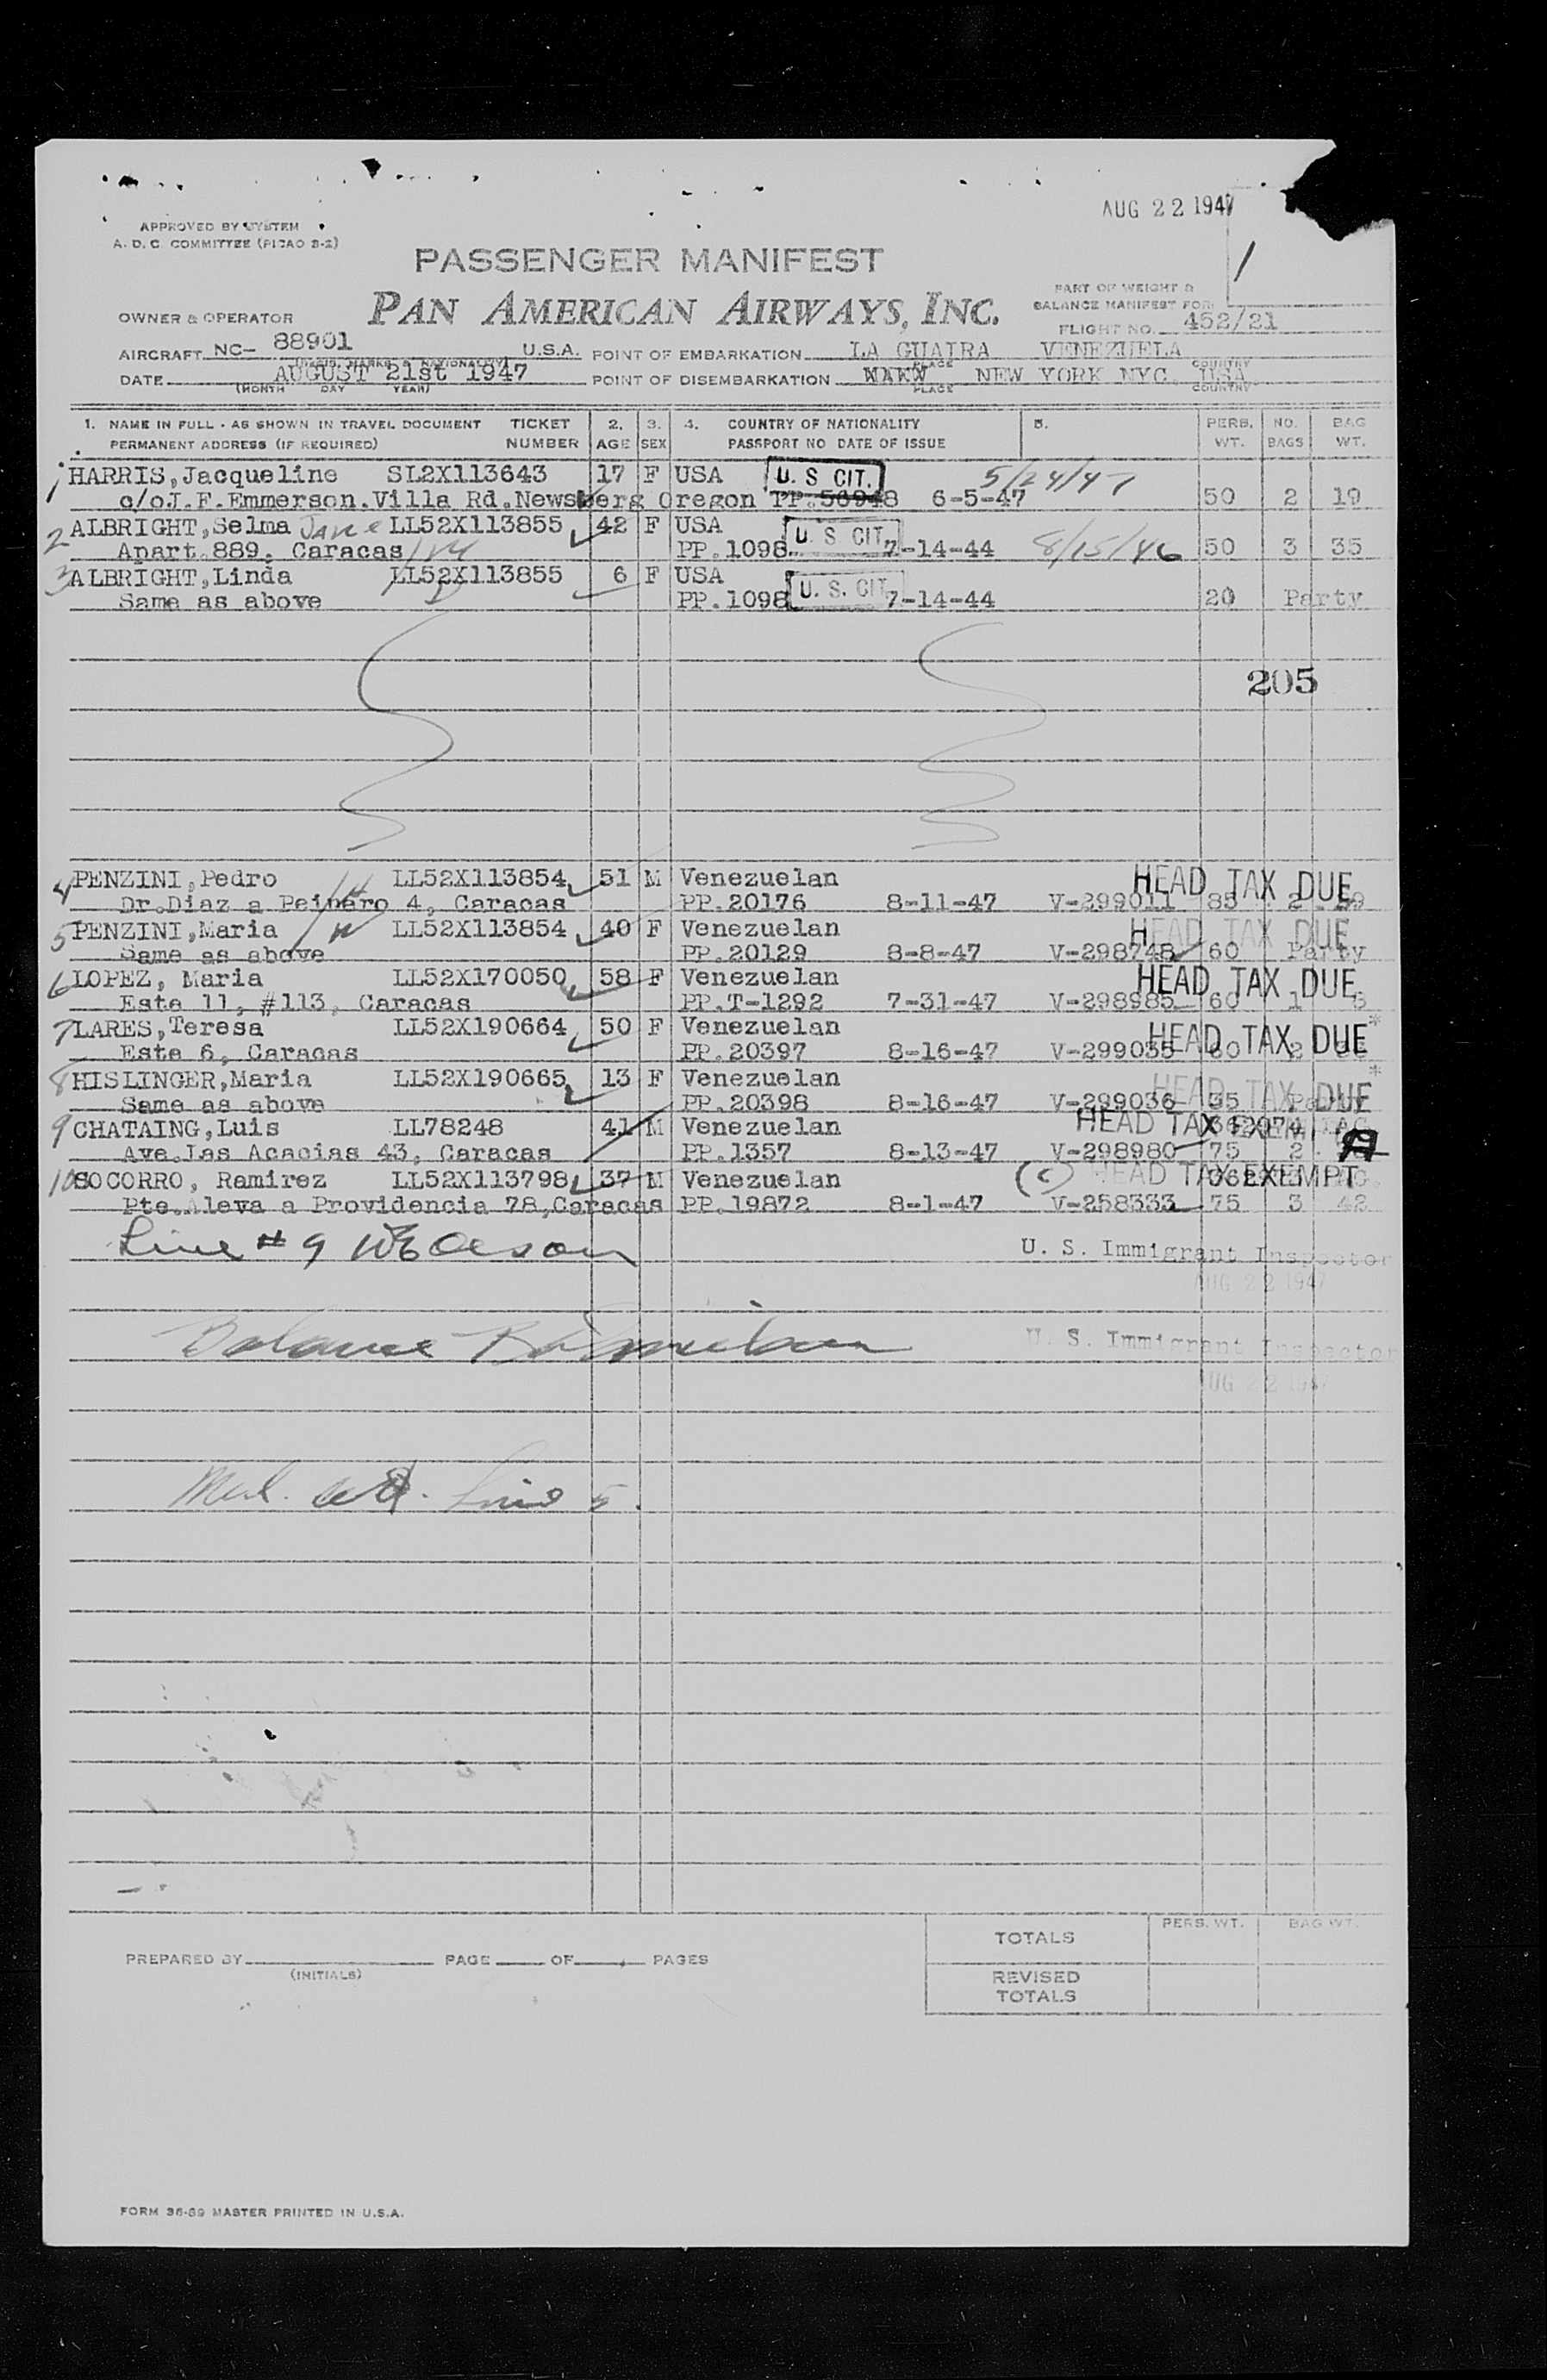 AUG 22 1947
APPROVED BY SYSTEM
A. D. C. COMMITTEE (PICAO S-2)
PASSENGER MANIFEST
1
PART OF WEIGHT &
OWNER & OPERATOR PAN AMERICAN AIRWAYS, INC. BALANCE MANIFEST FOR
FLIGHT NO. 452/21
AIRCRAFT NC- 88901 U.S.A. POINT OF EMBARKATION LA GUAIRA VENEZUELA
PLACE COUNTRY
DATE AUGUST 21st 1947 POINT OF DISEMBARKATION NEW YORK NYC. USA
(MONTH DAY YEAR) PLACE COUNTRY
1. NAME IN FULL - AS SHOWN IN TRAVEL DOCUMENT TICKET 2. 3. 4. COUNTRY OF NATIONALITY 5. PERS. NO. BAG
PERMANENT ADDRESS (IF REQUIRED) NUMBER AGE SEX PASSPORT NO DATE OF ISSUE WT. BAGS WT.
1 HARRIS, Jacqueline SL2X113643 17 F USA U. S CIT. 5/24/47
c/oJ.F.Emmerson.Villa Rd.Newsberg Oregon PP.56948 6-5-47 50 2 19
2 ALBRIGHT, Selma Jane LL52X113855 42 F USA U. S. CIT.
Apart.889. Caracas PP.1098 7-14-44 8/15/46 50 3 35
3 ALBRIGHT, Linda LL52X113855 6 F USA U. S. CIT.
Same as above PP.1098 7-14-44 20 Party
205
4 PENZINI, Pedro LL52X113854 51 M Venezuelan HEAD TAX DUE
Dr.Diaz a Peinero 4, Caracas PP.20176 8-11-47 V-299011 85 2
5 PENZINI, Maria LL52X113854 40 F Venezuelan HEAD TAX DUE
Same as above PP.20129 8-8-47 V-298748 60 Party
6 LOPEZ, Maria LL52X170050 58 F Venezuelan HEAD TAX DUE
Este 11, #113, Caracas PP.T-1292 7-31-47 V-298985 60 1
7 LARES, Teresa LL52X190664 50 F Venezuelan HEAD TAX DUE *
Este 6, Caracas PP.20397 8-16-47 V-299035 60 2
8 HISLINGER, Maria LL52X190665 13 F Venezuelan HEAD TAX DUE *
Same as above PP.20398 8-16-47 V-299036 35
9 CHATAING, Luis LL78248 41 M Venezuelan HEAD TAX EXEMPT
Ave.Las Acacias 43, Caracas PP.1357 8-13-47 V-298980 75 2
10 SOCORRO, Ramirez LL52X113798 37 M Venezuelan (c) HEAD TAX EXEMPT
Pte.Aleva a Providencia 78,Caracas PP.19872 8-1-47 V-258333 75 3 42
Line # 9 U. S. Immigrant Inspector
AUG 22 1947
Balance U. S. Immigrant Inspector
AUG 22 1947
Med. Line 5.
PREPARED BY PAGE OF PAGES
(INITIALS)
PERS. WT. BAG WT.
TOTALS
REVISED
TOTALS
FORM 36-89 MASTER PRINTED IN U.S.A.